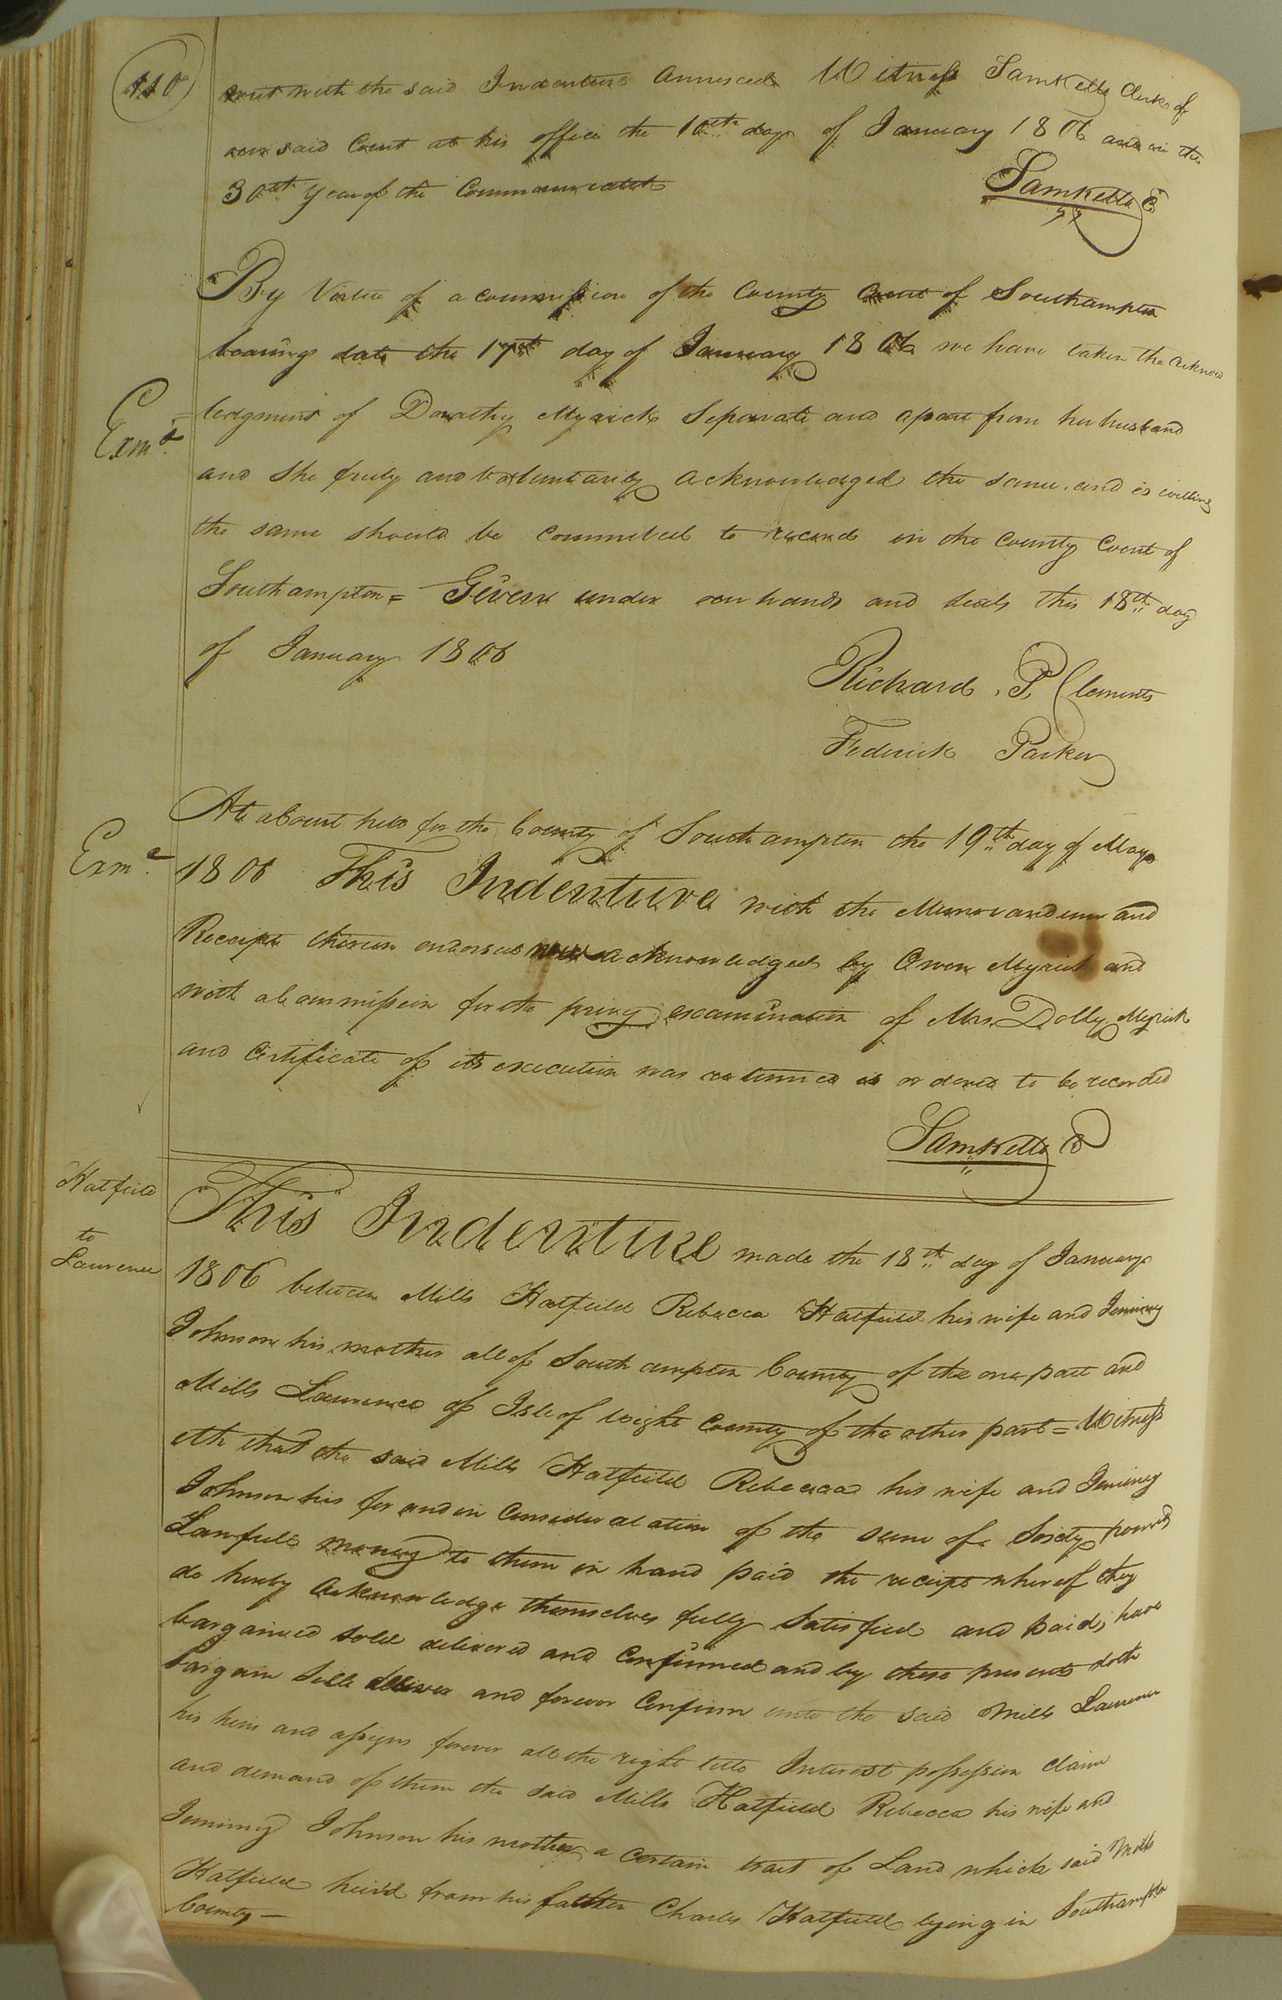 110
Court with the said Indenture Annexed Witness Saml Kello Clerk of
our said Court at his office the 16th day of January 1806 and in the
30th Year of the Commonwealth
Saml Kello C
By Virtue of a commission of the County Court of Southampton
bearing date the 17th day of January 1806 we have taken the acknow
Exmd
=ledgment of Dorathy Myrick Separate and apart from her husband
and she freely and Voluntarily acknowledged the same and is willing
the same should be committed to record in the County Court of
Southampton = Given under our hands and seals this 18th day
of January 1806
Richard P. Clements
Federick Parker
At a Court held for the County of Southampton the 19th day of May
Exmd
1806 This Indenture with the Memorandum and
Receipt thereon endorsed was acknowledged by Owen Myrick and
with a Commission for the privy examination of Mrs Dolly Myrick
and Certificate of its execution was returned is ordered to be recorded
Saml Kello C
Hatfield
to
Laurence
This Indenture made the 18th day of January
1806 between Mills Hatfield Rebecca Hatfield his wife and Jeminy
Johnson his mother all of Southampton County of the one part and
Mills Laurence of Isle of Wight County of the other part = Witness
eth that the said Mills Hatfield Rebecca his wife and Jeminy
Johnson his for and in Consideration of the sum of Sixty pounds
Lawfull money to them in hand paid the receipt whereof they
do hereby acknowledge themselves fully Satisfied and paid, have
bargained sold delivered and Confirmed and by these presents doth
bargain Sell deliver and forever Confirm unto the said Mills Laurence
his heirs and assigns forever all the right title Interest possession claim
and demand of them the said Mills Hatfield Rebecca his wife and
Jeminy Johnson his mother a Certain tract of Land which said Mills
Hatfield heir'd from his father Charles Hatfield lying in Southampton
County —